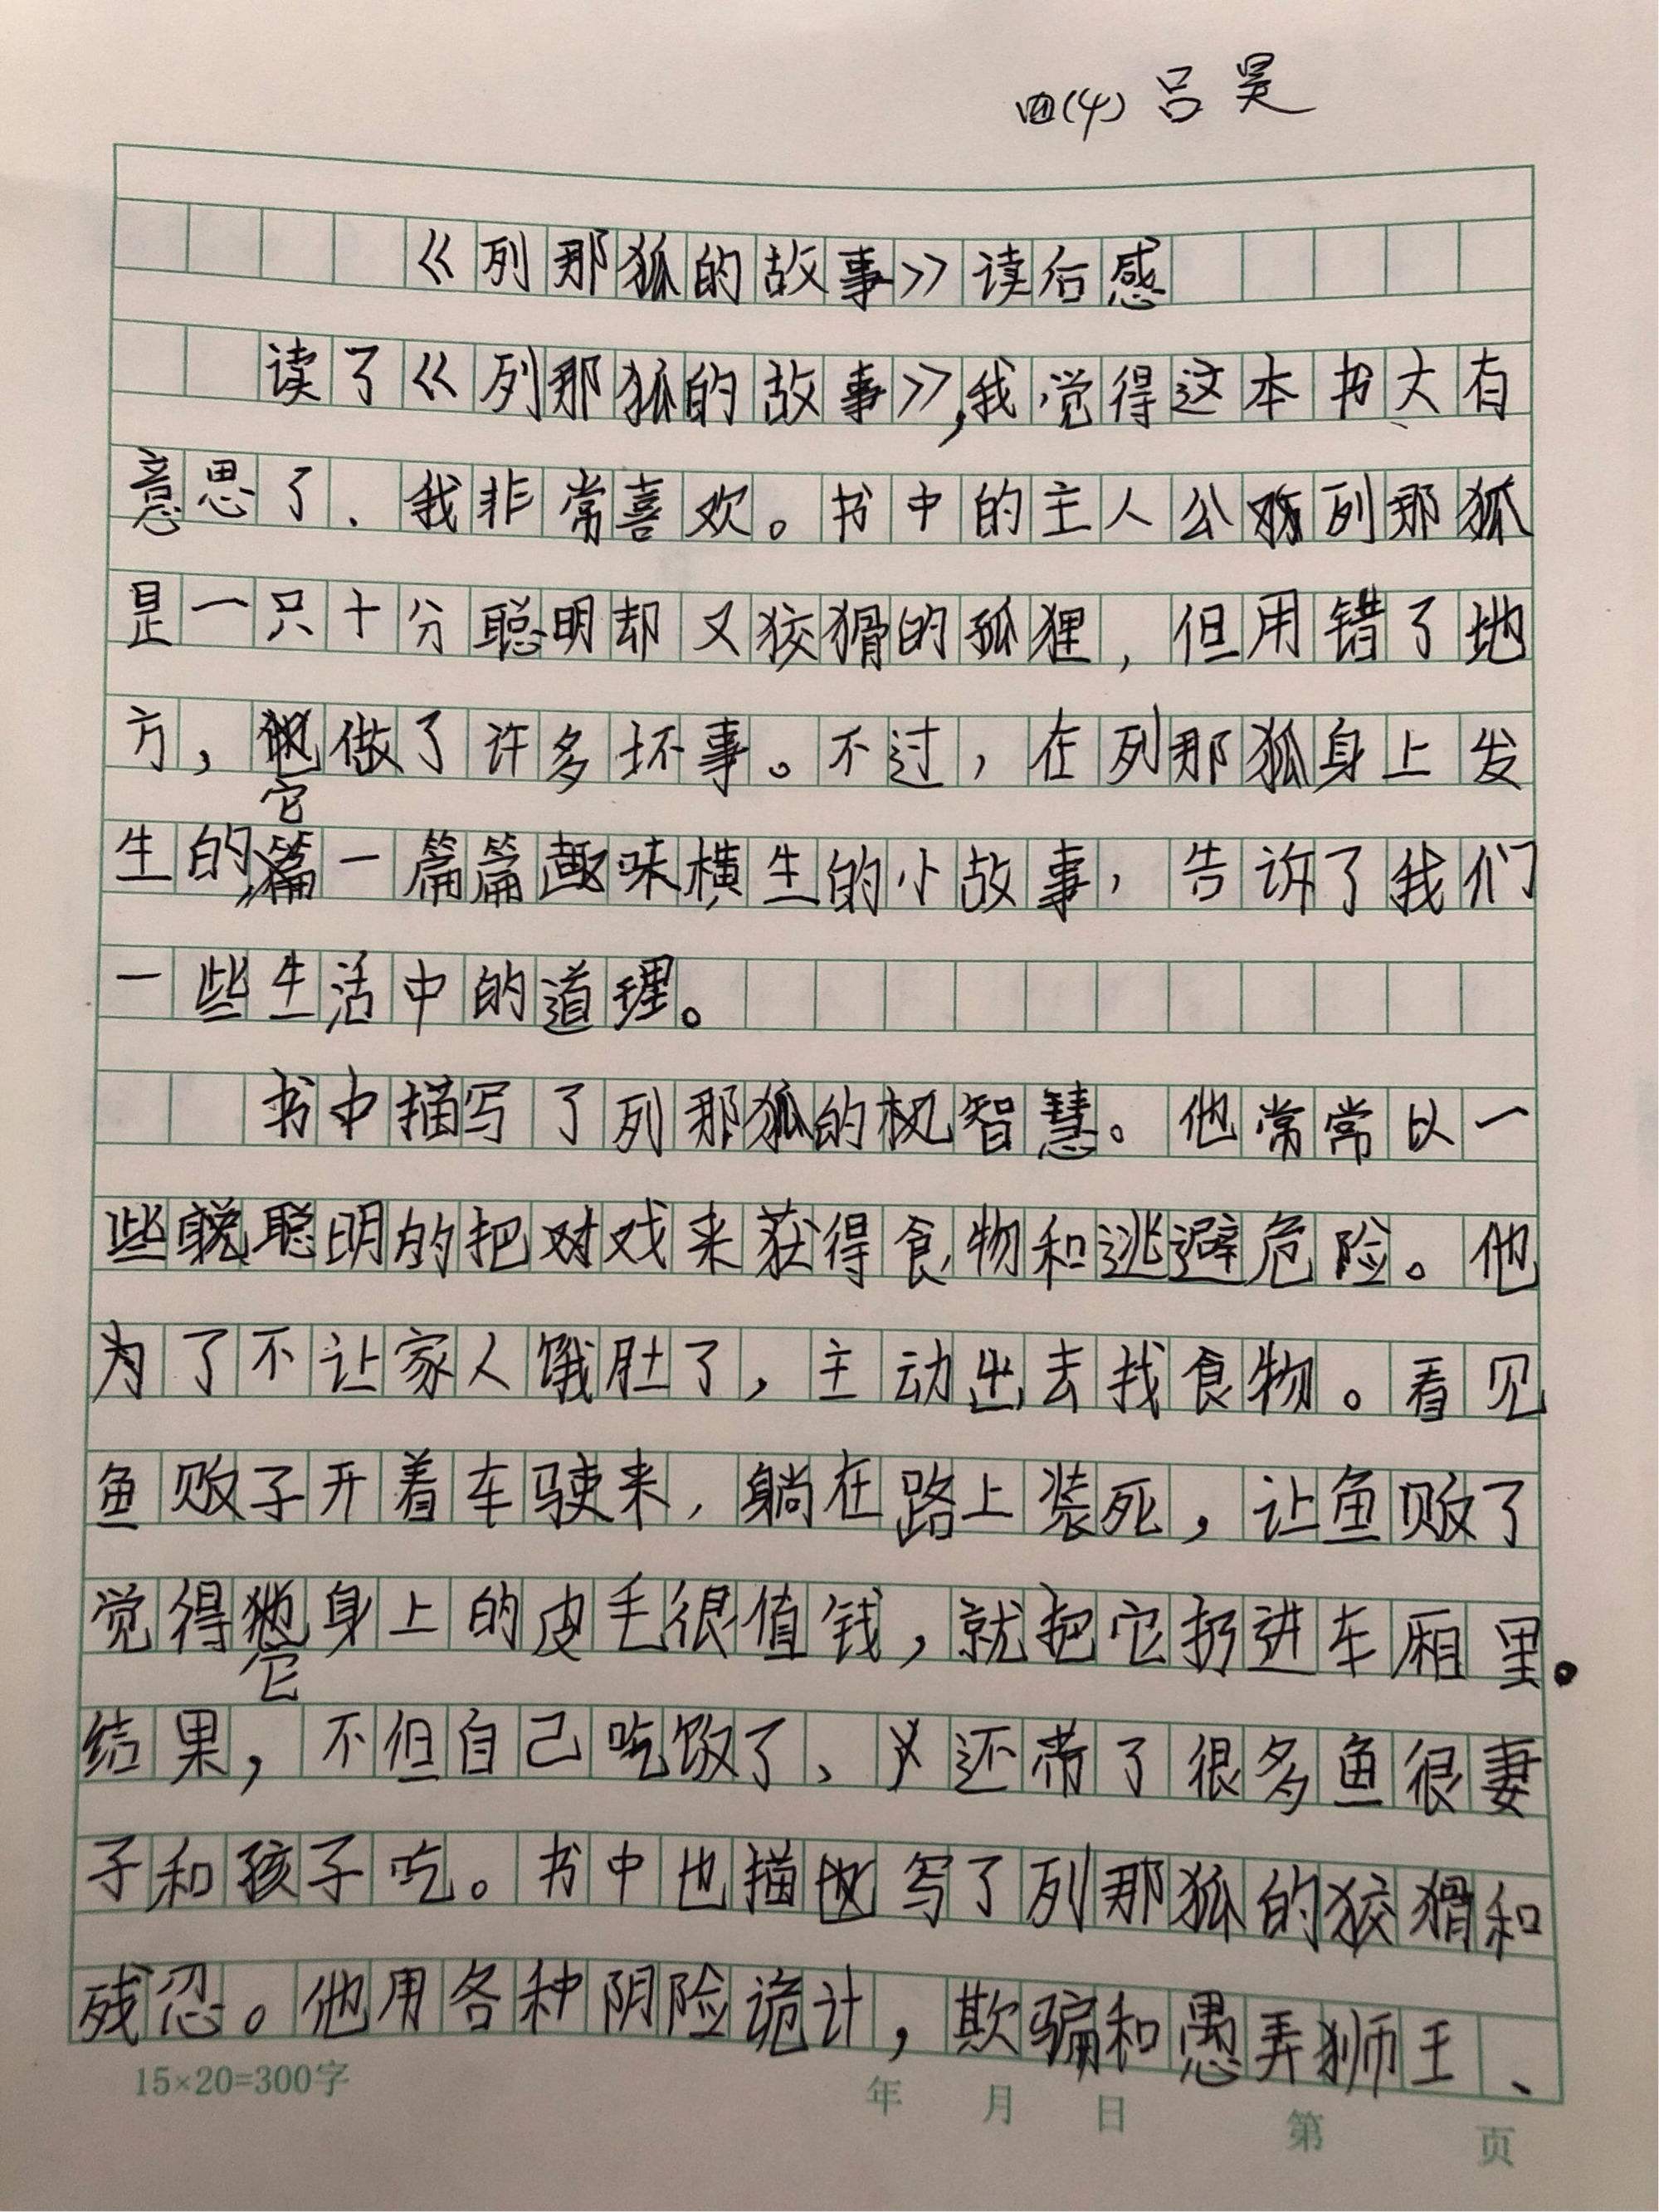 四(4) 吕昊
《列那狐的故事》读后感
读了《列那狐的故事》,我觉得这本书太有
意思了、我非常喜欢。书中的主人公列那狐
是一只十分聪明却又狡猾的孤狸,但用错了地
方,它做了许多坏事。不过,在列那狐身上发
生的一篇篇趣味横生的小故事,告诉了我们
一些生活中的道理。
书中描写了列那狐的机智慧。他常常以一
些聪明的把对戏来获得食物和逃避危险。他
为了不让家人饿肚了,主动出去找食物。看见
鱼贩子开着车驶来,躺在路上装死,让鱼贩了
觉得它身上的皮毛很值钱,就把它扔进车厢里。
结果,不但自己吃饭了、还带了很多鱼很妻
子和孩子吃。书中也描写了列那狐的狡猾和
残忍。他用各种阴险诡计,欺骗和愚弄狮王、
15×20=300字 年 月 日 第 页